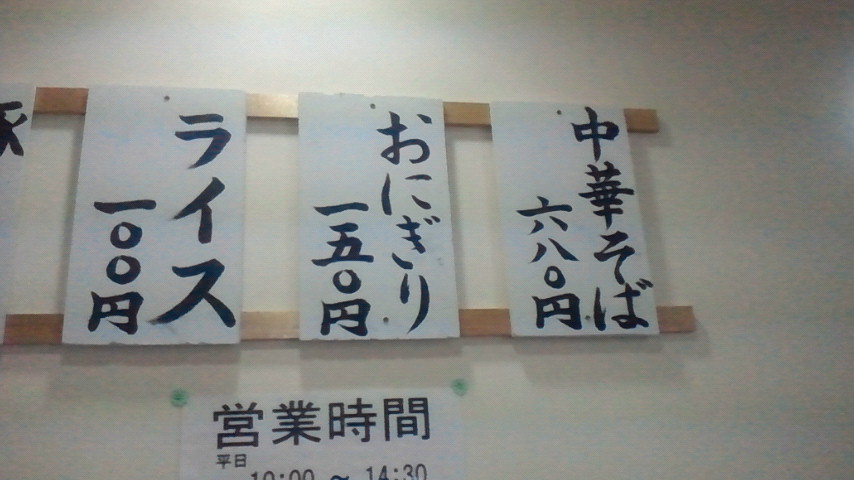 中華そば
六八〇円
おにぎり
一五〇円
ライス
一〇〇円
営業時間
平日
10:00 ～ 14:30